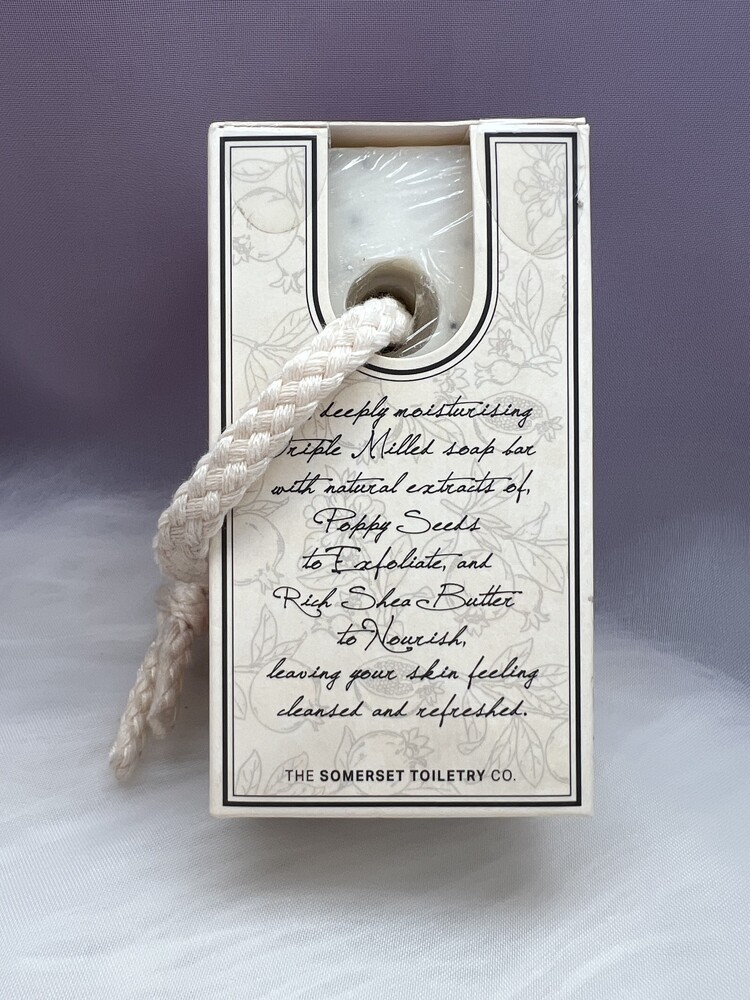 deeply moisturising
Triple Milled soap bar
with natural extracts of,
Poppy Seeds
to Exfoliate, and
Rich Shea Butter
to Nourish,
leaving your skin feeling
cleansed and refreshed.
THE SOMERSET TOILETRY CO.